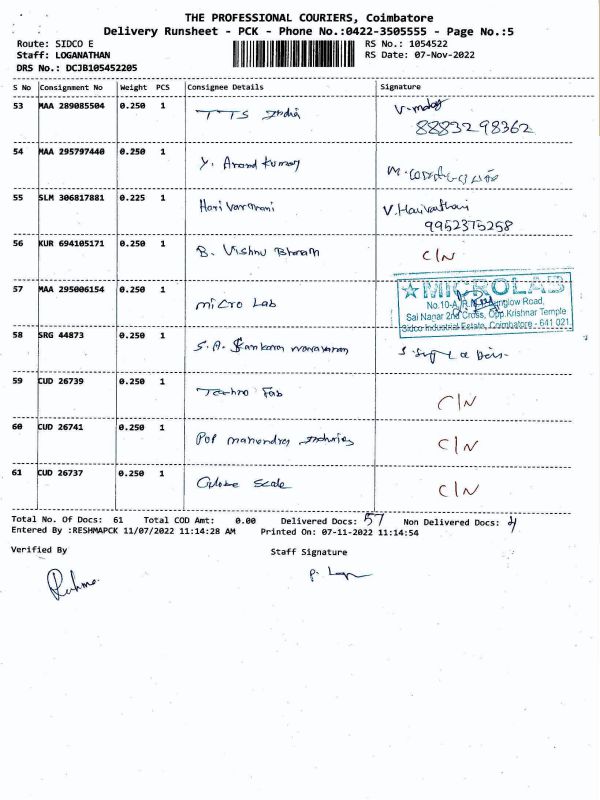 THE PROFESSIONAL COURIERS, Coimbatore
Delivery Runsheet - PCK - Phone No.:0422-3505555 - Page No.:5
Route: SIDCO E RS No.: 1054522
Staff: LOGANATHAN RS Date: 07-Nov-2022
DRS No.: DCJB105452205
S No Consignment No Weight PCS Consignee Details Signature
53 MAA 289085504 0.250 1 TTS India
8883298362
54 MAA 295797440 0.250 1 Y. Anand Kumar
55 SLM 306817881 0.225 1 Hari Varthani V. Harivathani
9952375258
56 KUR 694105171 0.250 1 B. Vishnu Bharam C/N
57 MAA 295006154 0.250 1 Micro Lab
MICROLAB
No.10-A, Road,
Sai Nagar 2nd Cross, Opp.Krishnar Temple
Sidco Industrial Estate, Coimbatore - 641 021
58 SRG 44873 0.250 1 S.A. Sankara narayanan
59 CUD 26739 0.250 1 Techno Fab C/N
60 CUD 26741 0.250 1 Pop mahendra C/N
61 CUD 26737 0.250 1 Globe Scale C/N
Total No. Of Docs: 61 Total COD Amt: 0.00 Delivered Docs: 57 Non Delivered Docs: 4
Entered By :RESHMAPCK 11/07/2022 11:14:28 AM Printed On: 07-11-2022 11:14:54
Verified By Staff Signature